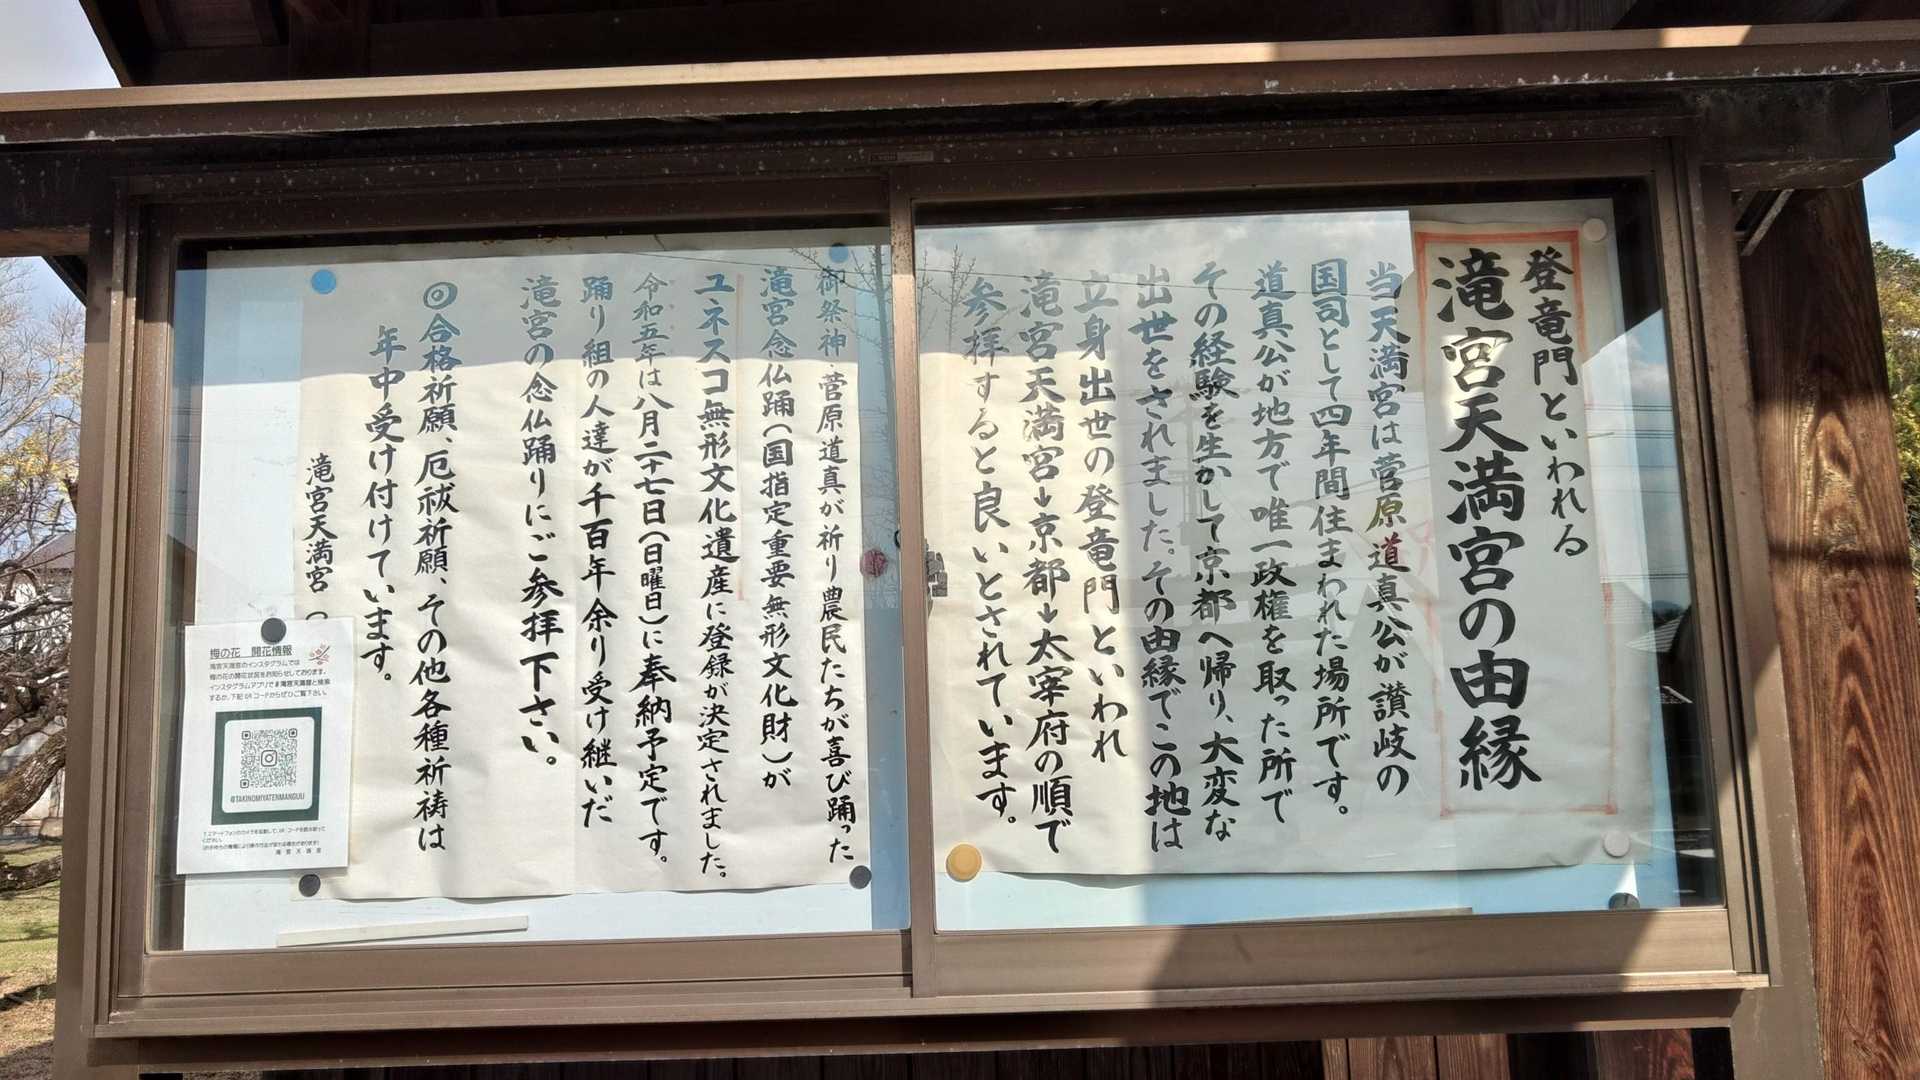 登竜門といわれる
滝宮天満宮の由縁
当天満宮は菅原道真公が讃岐の
国司として四年間住まわれた場所です。
道真公が地方で唯一政権を取った所で
その経験を生かして京都へ帰り、大変な
出世をされました。その由縁でこの地は
立身出世の登竜門といわれ
滝宮天満宮→京都→太宰府の順で
参拝すると良いとされています。
御祭神・菅原道真が祈り農民たちが喜び踊った
滝宮念仏踊(国指定重要無形文化財)が
ユネスコ無形文化遺産に登録が決定されました。
令和五年は八月二十七日(日曜日)に奉納予定です。
踊り組の人達が千百年余り受け継いだ
滝宮の念仏踊りにご参拝下さい。
◎合格祈願、厄祓祈願、その他各種祈祷は
年中受け付けています。
滝宮天満宮
梅の花 開花情報
滝宮天満宮のインスタグラムでは
梅の花の開花状況をお知らせしております。
インスタグラムアプリで#滝宮天満宮と検索
するか、下記QRコードからぜひご覧下さい。
@TAKINOMIYATENMANGUU
滝宮天満宮